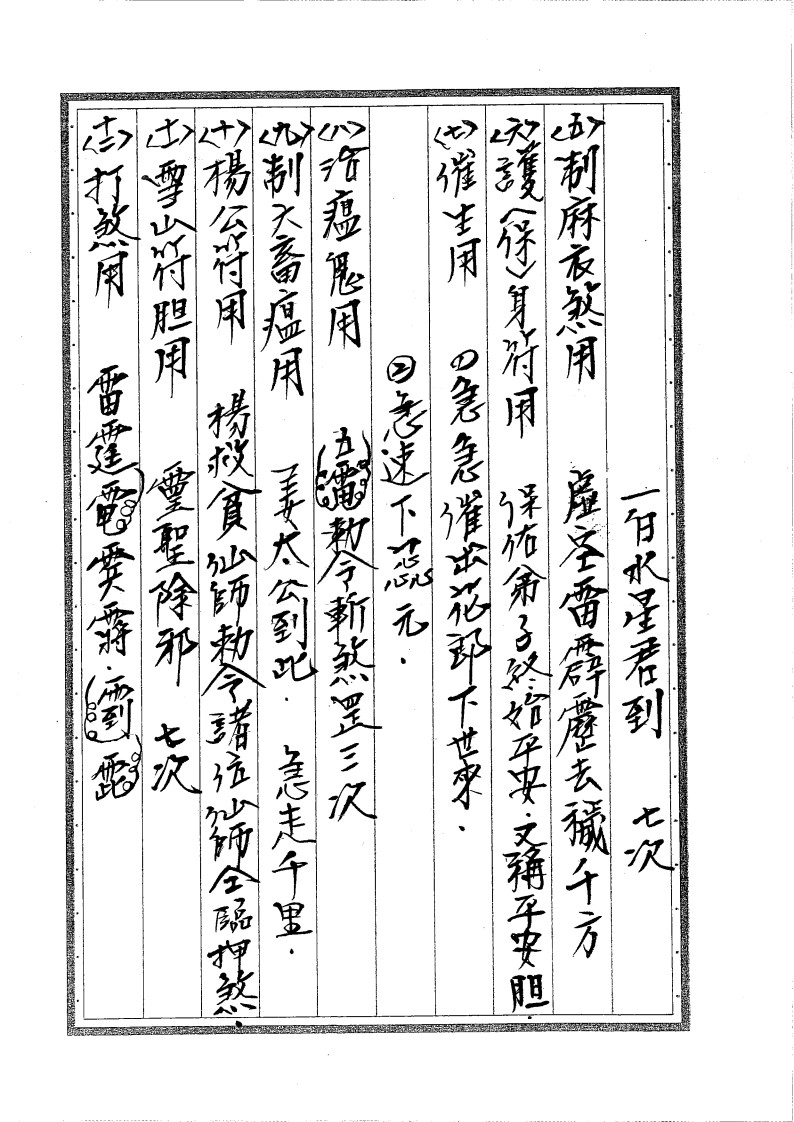 一白水星君到 七次
〈五〉制麻衣煞用 虛空雷霹靂去穢千方
〈六〉護〈保〉身符用 保佑弟子終始平安．又稱平安胆．
〈七〉催生用 ⑴急急催出花郎下世來．
②急速下 元．
〈八〉治瘟鬼用 五雷勅令斬煞罡三次
〈九〉制六畜瘟用 姜太公到此． 急走千里．
〈十〉楊公符用 楊救貧仙師勅令諸位仙師仝臨押煞．
〈十一〉雪山符胆用 靈聖除邪 七次
〈十二〉打煞用 雷霆